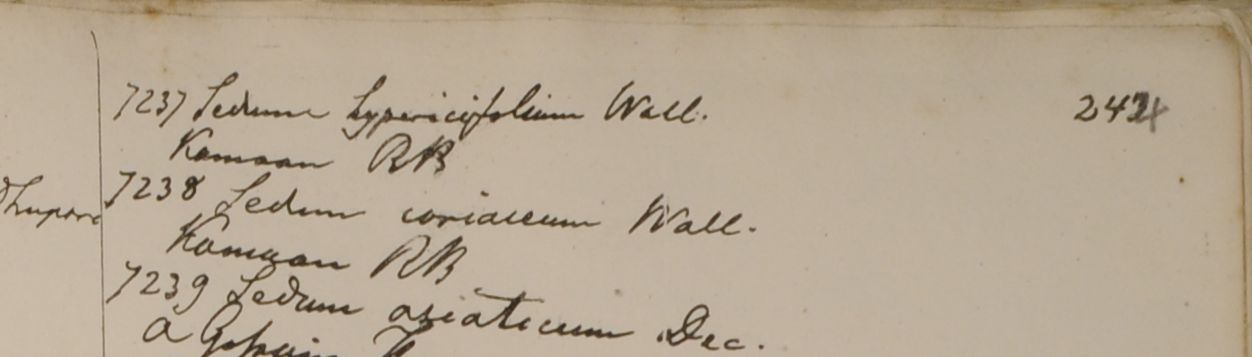 7237 Sedum hypericifolium Wall.
244
Kamaon RB
7238 Sedum coriaceum Wall.
Kamaon RB
7239 Sedum asiaticum Dec.
a